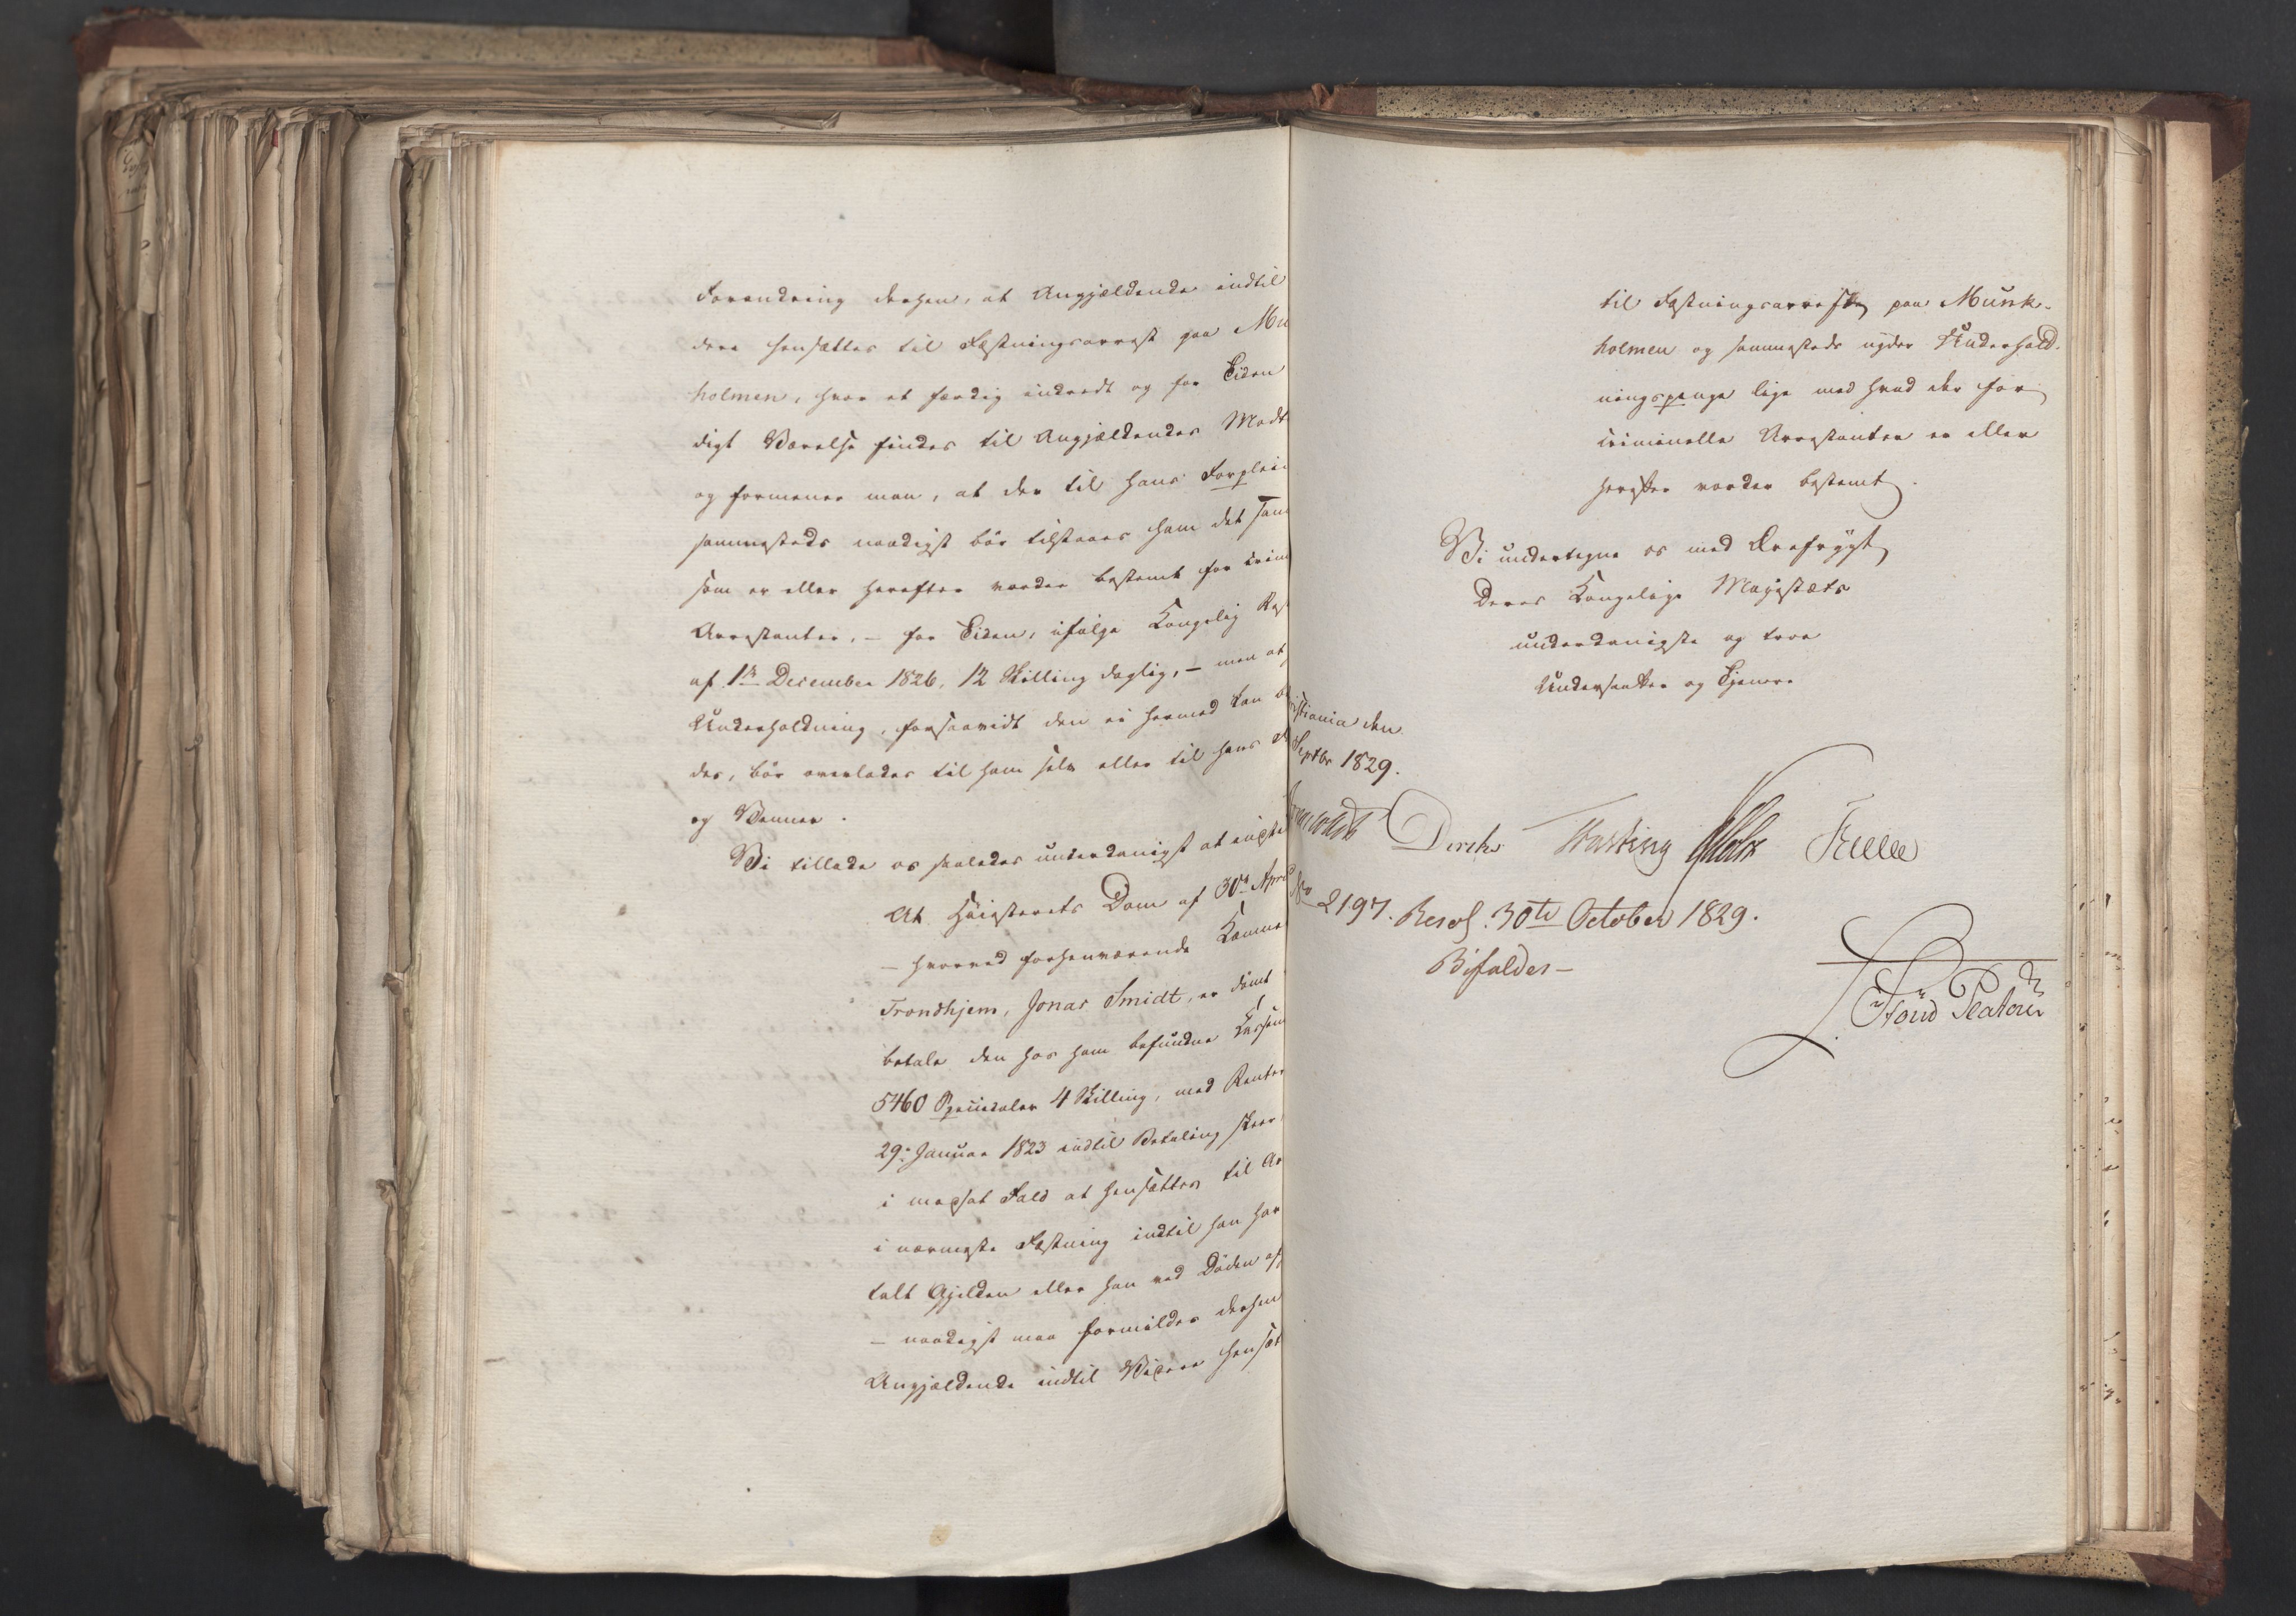 Forandring derhen, at Angjældende indtil
dere hensættes til Fæstningsarrest paa Mu
holmen, hvor et færdig indredt og for Tiden
digt Værelse findes til Angjældendes Modt
og formener man, at der til hans Forplei
sammesteds naadigst bør tilstaaes ham det sam
som er eller herefter vorder bestemt for crim
Arrestanter, – for Tiden, ifølge Kongelig Res
af 1ste December 1826, 12 Skilling daglig, – men at
Underholdning, forsaavidt den ei hermed kan
des, bør overlades til ham selv eller til hans
og Venner.
Vi tillade os saaledes underdanigst at indstil
At Høiesterets Dom af 30te April
– hvorved forhenværende Kæmne
Trondhjem, Jonas Smidt, er dømt
betale den hos ham befundne Kassem
5460 Speciedaler 4 Skilling, med Renter
29de Januar 1823 indtil Betaling skeer,
i modsat Fald at hensættes til Ar
i nærmeste Fæstning indtil han har
talt Gjelden eller han ved Døden af
– naadigst maa formildes derhen
Angjældende indtil Videre hensæt
til Fæstningsarrest paa Munk-
holmen og sammesteds nyder Underhold-
ningspenge lige med hvad der for
criminelle Arrestanter er eller
herefter vorder bestemt.
Vi undertegne os med Ærefrygt
Deres Kongelige Majestæts
underdanigste og troe
Undersaatter og Tjenere
istiania den
Septbr 1829.
Diriks Treschow Holst Krieg
No 2197. Resol. 30te October 1829.
Bifaldes –